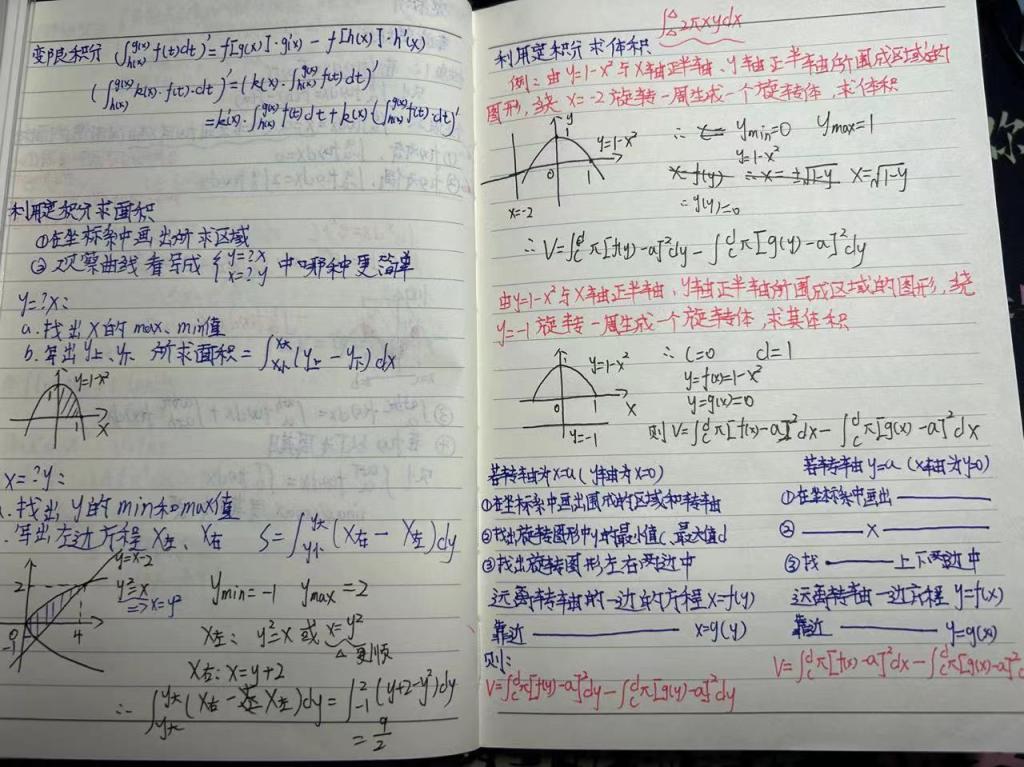 变限积分 (∫_{h(x)}^{g(x)} f(t)dt)' = f[g(x)]·g'(x) - f[h(x)]·h'(x)
(∫_{h(x)}^{g(x)} k(x)·f(t)·dt)' = (k(x)·∫_{h(x)}^{g(x)} f(t)dt)'
= k'(x)·∫_{h(x)}^{g(x)} f(t)dt + k(x)·(∫_{h(x)}^{g(x)} f(t)·dt)'
利用定积分求面积
①在坐标系中画出所求区域
② 观察曲线看写成 { y=?x x=?y 中哪种更简单
y=?x:
a.找出x的max、min值
b.写出y上、y下 所求面积 = ∫_{x小}^{x大} (y上 - y下) dx
y=1-x²
1
1
x
x=?y:
.找出y的min和max值
.写出左边方程 x左、x右 S=∫_{y小}^{y大} (x右 - x左) dy
y=x-2
y²=x
=> x=y²
2
0
-1
4
y min=-1 y max=2
x左: y²=x 或 x=y²
△更顺
x右: x=y+2
∴ ∫ (x右 - x左)dy = ∫_{-1}^{2} (y+2-y²)dy
= 9/2
∫ 2πxydx
利用定积分求体积
例: 由y=1-x²与x轴正半轴、y轴正半轴所围成区域的
图形,绕 x=-2 旋转一周生成一个旋转体,求体积
y
y=1-x²
0
1
x=-2
∴ y min=0 y max=1
y=1-x²
x=f(y) ∴x=±√1-y x=√1-y
=g(y)=0
∴ V=∫_c^d π[f(y)-a]²dy - ∫_c^d π[g(y)-a]²dy
由y=1-x²与x轴正半轴、y轴正半轴所围成区域的图形,绕
y=-1 旋转一周生成一个旋转体,求其体积
y=1-x²
0
1
x
y=-1
∴ c=0 d=1
y=f(x)=1-x²
y=g(x)=0
则 V=∫_c^d π[f(x)-a]²dx - ∫_c^d π[g(x)-a]²dx
若转轴为x=a (y轴为x=0)
①在坐标系中画出围成的区域和转轴
②找出旋转图形中y的最小值c、最大值d
③找出旋转图形左右两边中
远离转轴的一边的方程 x=f(y)
靠近 —— x=g(y)
则:
V=∫_c^d π[f(y)-a]²dy - ∫_c^d π[g(y)-a]²dy
若转轴y=a (x轴为y=0)
①在坐标系中画出 ——
② —— x ——
③找 —— 上下两边中
远离转轴一边方程 y=f(x)
靠近 —— y=g(x)
V=∫_c^d π[f(x)-a]²dx - ∫_c^d π[g(x)-a]²